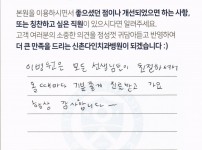 본원을 이용하시면서 좋으셨던 점이나 개선되었으면 하는 사항,
또는 칭찬하고 싶은 직원이 있으시다면 알려주세요.
고객 여러분의 소중한 의견을 정성껏 귀담아듣고 반영하여
더 큰 만족을 드리는 신촌다인치과병원이 되겠습니다 :)
이 병원은 모든 선생님들이 친절하셔서
올 때마다 기분 좋게 진료받고 가요
항상 감사합니다